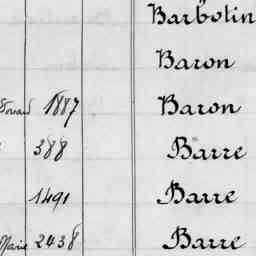 Barbotin
Baron
1887 Baron
388 Barre
1491 Barre
Marie 2438 Barre